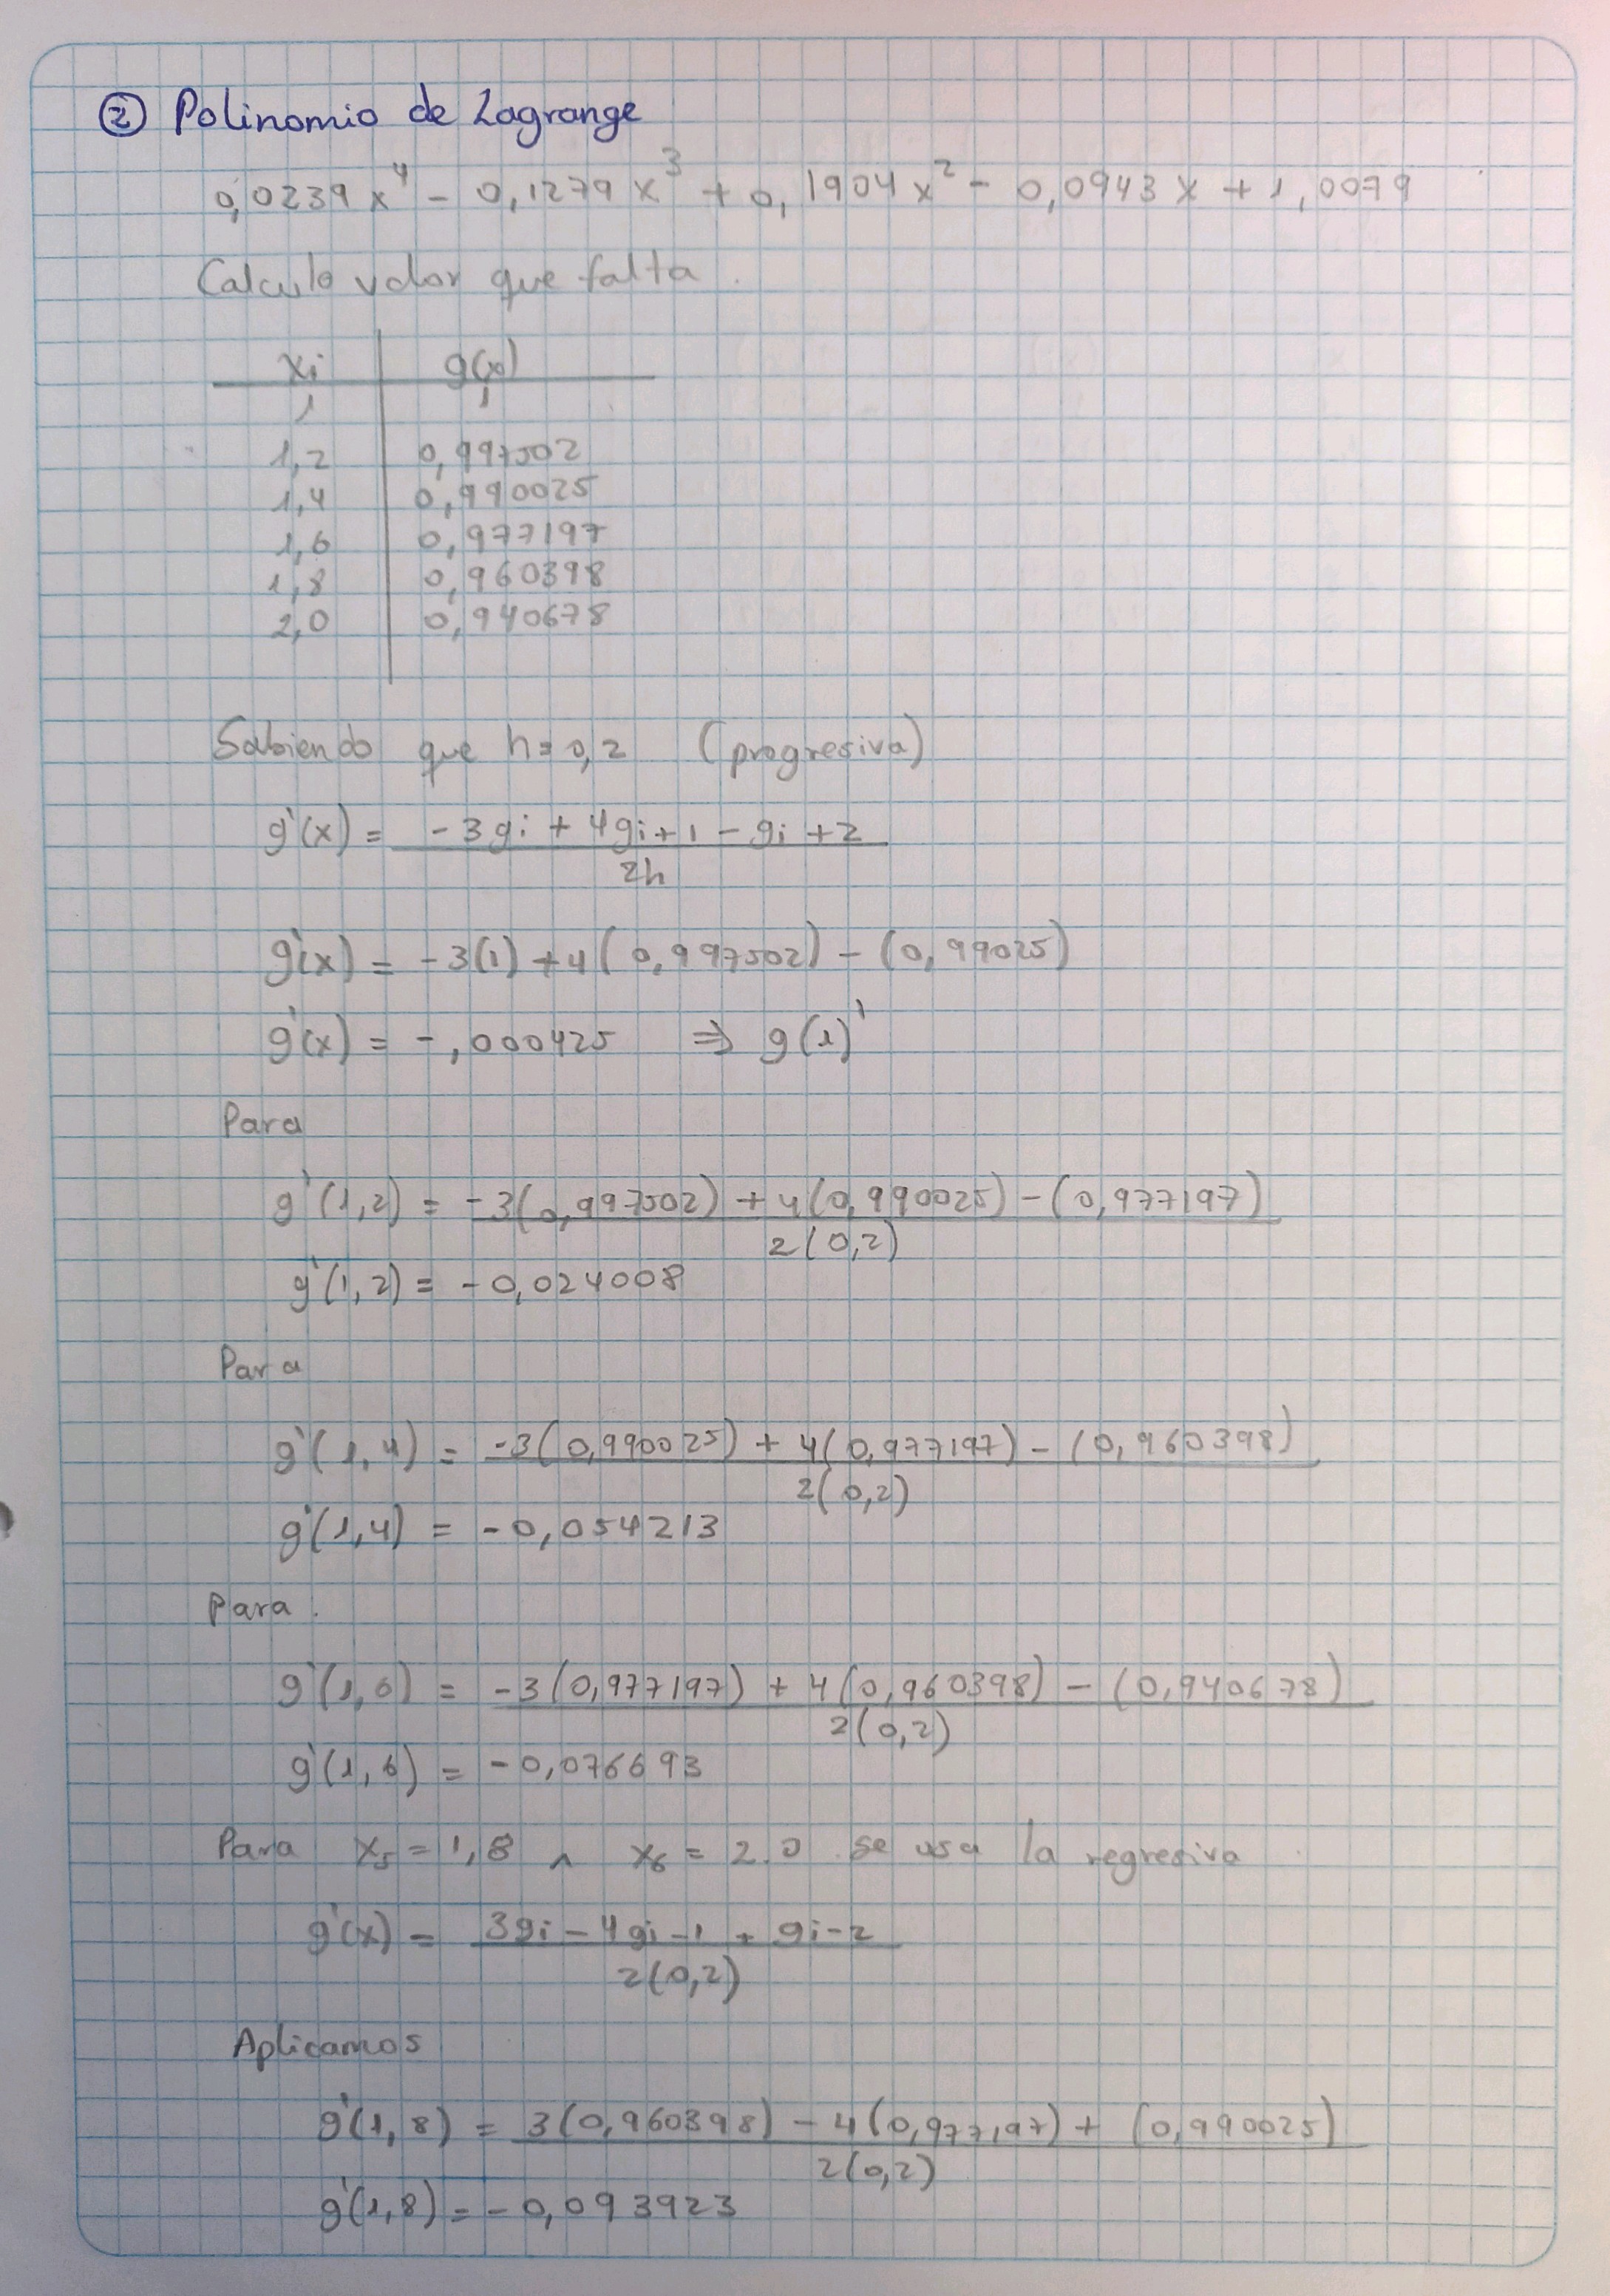 ② Polinomio de Lagrange
0,0239x⁴ - 0,1279x³ + 0,1904x² - 0,0943x + 1,0079
Calculo valor que falta.
xi | g(x)
1 | 1
1,2 | 0,997502
1,4 | 0,990025
1,6 | 0,977197
1,8 | 0,960398
2,0 | 0,940678
Sabiendo que h=0,2 (progresiva)
g'(x) = -3gi + 4gi+1 - gi+2
2h
g'(x) = -3(1) + 4(0,997502) - (0,99025)
g'(x) = -,000425 ⇒ g(1)'
Para
g'(1,2) = -3(0,997502) + 4(0,990025) - (0,977197)
2(0,2)
g'(1,2) = -0,024008
Para
g'(1,4) = -3(0,990025) + 4(0,977197) - (0,960398)
2(0,2)
g'(1,4) = -0,054213
Para.
g'(1,6) = -3(0,977197) + 4(0,960398) - (0,940678)
2(0,2)
g'(1,6) = -0,076693
Para x₅ = 1,8 ∧ x₆ = 2.0 se usa la regresiva
g'(x) = 3gi - 4gi-1 + gi-2
2(0,2)
Aplicamos
g'(1,8) = 3(0,960398) - 4(0,977197) + (0,990025)
2(0,2)
g'(1,8) = -0,093923